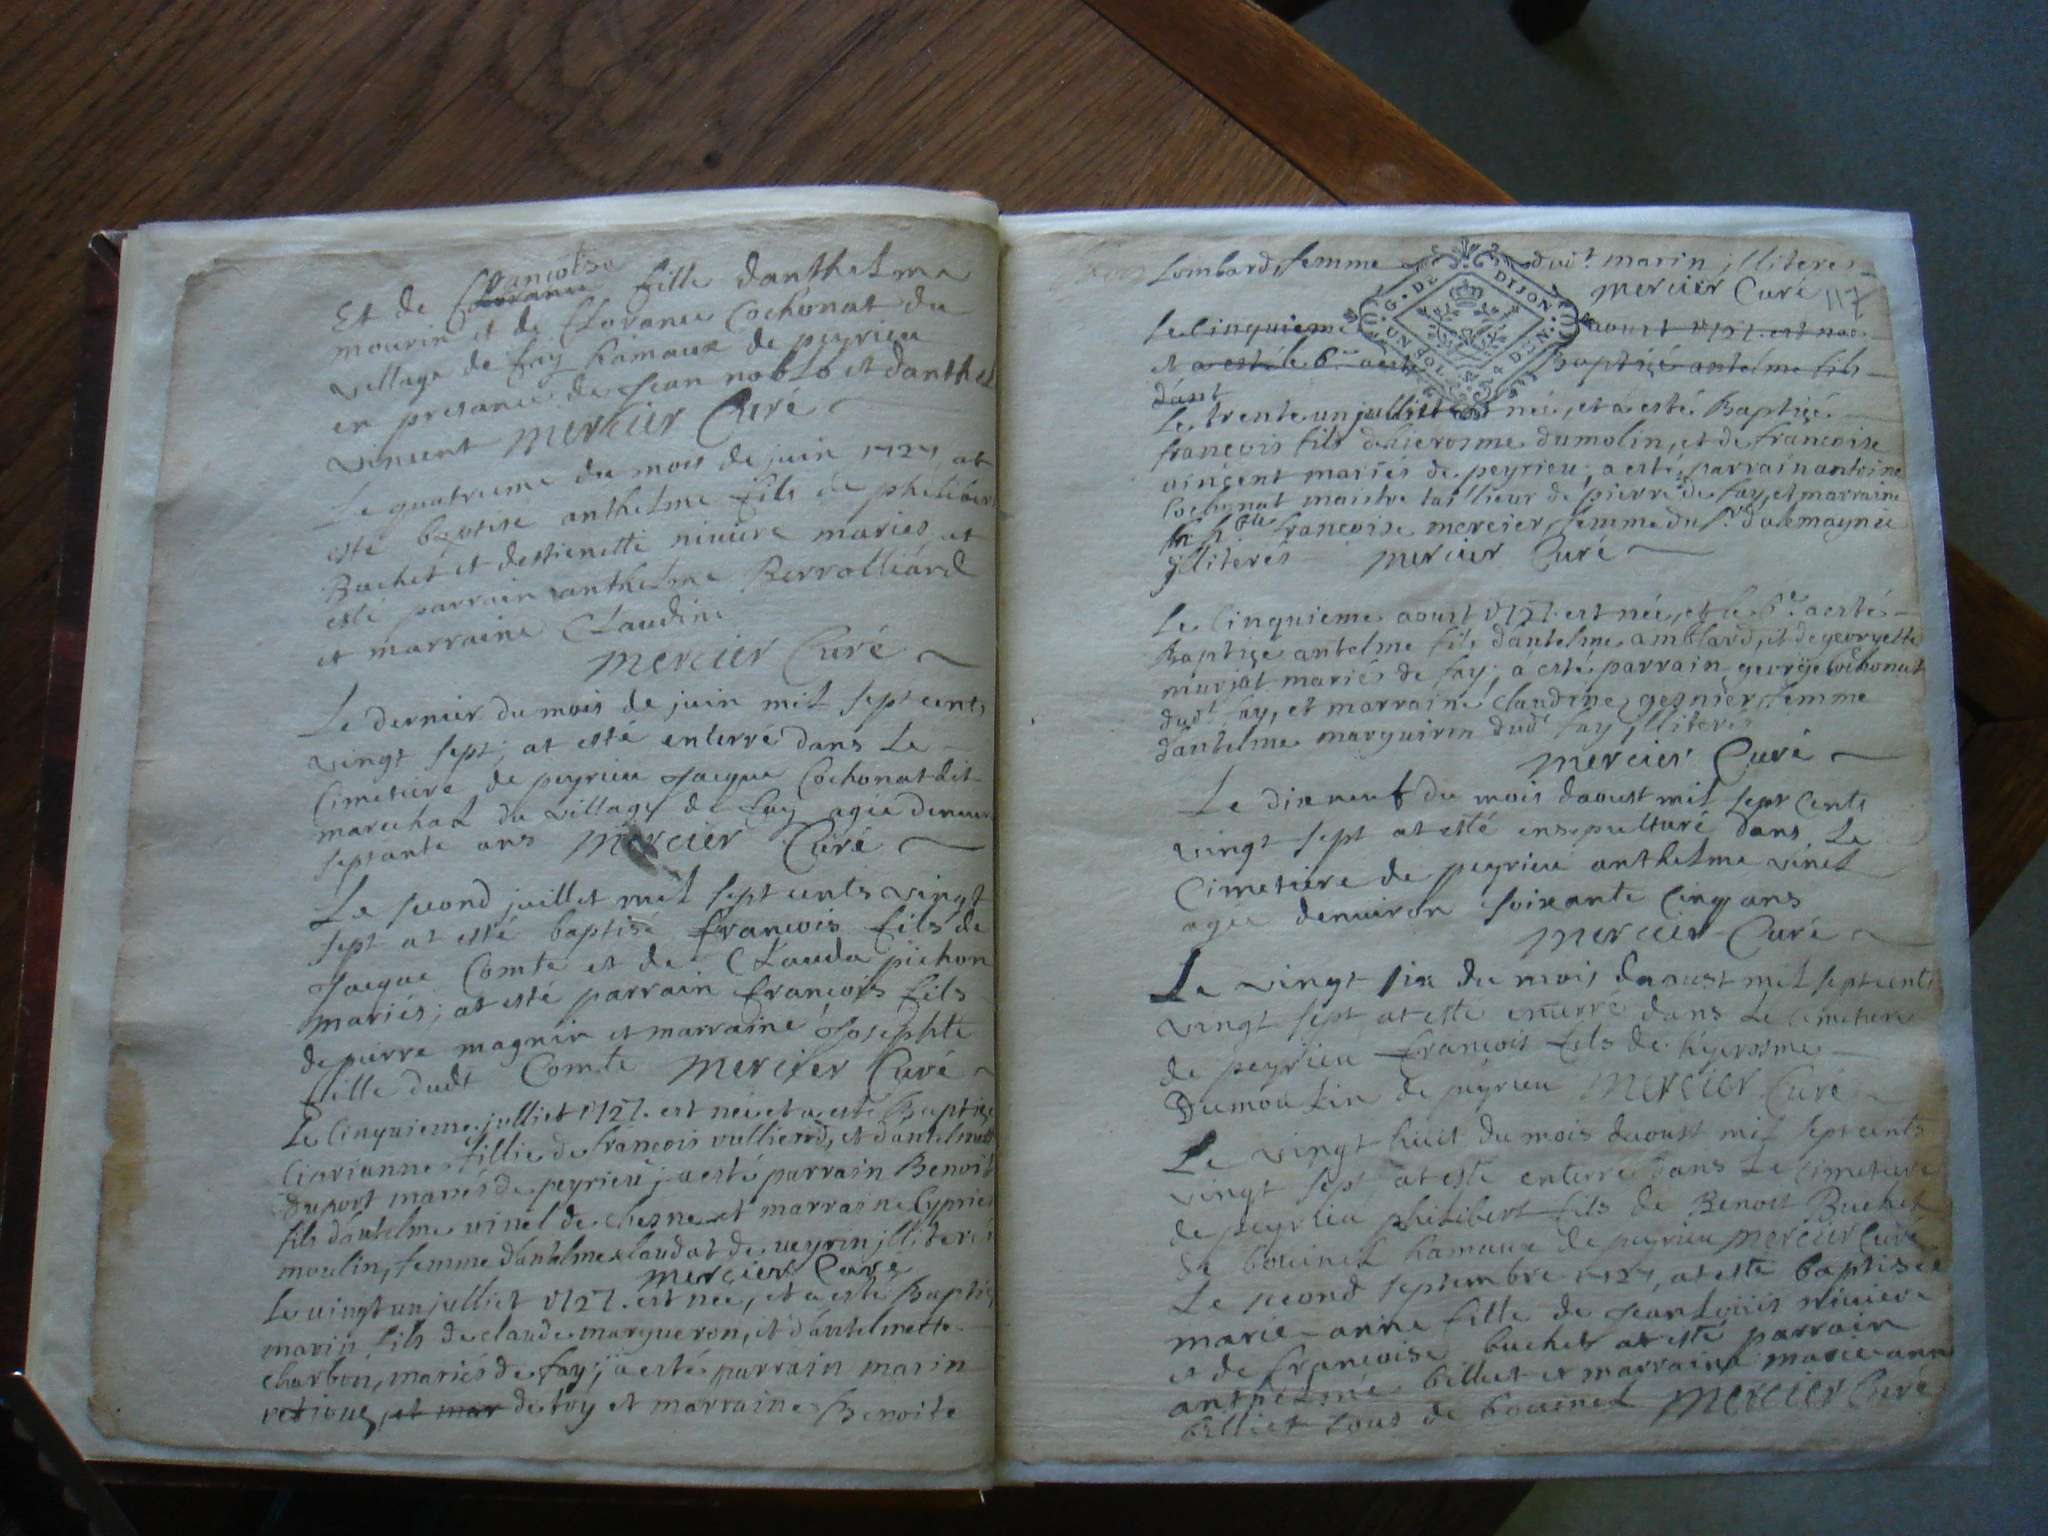 Et de françoise fille danthelme
mourin et de Clorance Cochonat du
village de fay hamaux de peyrieu
en presance de Jean noblo et danthel
vincent mercier Curé
Le quatrieme du mois de juin 1727 at
esté baptisé anthelme fils de philibert
Buchet et destienette niviere mariés et
esté parrain anthelme Berrolliard
et marraine Claudine
mercier Curé
Le dernier du mois de juin mil sept cents
vingt sept, at esté enterré dans Le
Cimetiere de peyrieu Jacque Cochonat dit
marechal du village de fay agée denviron
septante ans mercier Curé
Le second juillet mil sept cents vingt
sept at esté baptisé francois fils de
Jacque Comte et de Clauda pichon
mariés; at esté parrain francois fils
de pierre magnin et marraine Josephte
fille dudt Comte mercier Curé
Le Cinquieme julliet 1727. est née et a esté Baptisée
Ciprianne fillie de francois vullierd, et dantelmette
duport mariés de peyrieu; a esté parrain Benoit
fils dantelme vinel de chesne et marraine Cyprien
moulin, femme dantelme claudat de veyrin illiterés
mercier Curé
Le vingt un julliet 1727. est née, et a esté Baptisé
marin fils de claude margueron, et dantelmette
charbon, mariés de fay; a esté parrain marin
et mar de fay et marraine Benoite
Lombard, femme dudt. marin illiteres
mercier Curé
117
G. DE DIJON
UN SOL 4 DEN.
Le Cinquieme aoust 1727. est née
et a esté le 6me aesté Baptisé antelme fils
dant
Le trente un julliet est née, et a esté Baptisé
françois fils d hierosme dumolin, et de francoise
vincent mariés de peyrieu; a esté parrain antoine
Cochonat maistre tallieur de pierre de fay, et marraine
francoise mercier, femme du Sr. dalemagnie
illiteres mercier Curé
Le Cinquieme aoust 1727. est née, et le 6e. a esté
Baptisé antelme fils dantelme amblard, et de georgette
murjat mariés de fay; a esté parrain george Cochonat
dudt fay, et marraine claudine gesnier, femme
dantelme marguirin dudt fay illiteres
mercier Curé
Le dix neuf du mois daoust mil sept Cents
vingt sept at esté ensepulturé dans Le
Cimetiere de peyrieu anthelme vinel
agée denviron soixante Cinq ans
mercier Curé
Le vingt six du mois daoust mil sept cents
vingt sept, at esté enterré dans Le Cimetiere
de peyrieu francois fils de hyerosme
Dumoulin de peyrieu mercier Curé
Le vingt huit du mois daoust mil sept cents
vingt sept, at esté enterré dans Le Cimetiere
de peyrieu philibert fils de Benoit Buchet
de bovinel hamaux de peyrieu mercier Curé
Le second septembre 1727, at esté baptisée
marie-anne fille de Jean Loüis niviere
et de françoise buchet at esté parrain
anthelme billiet et marraine marie-anne
billiet tous de bovinel mercier Curé